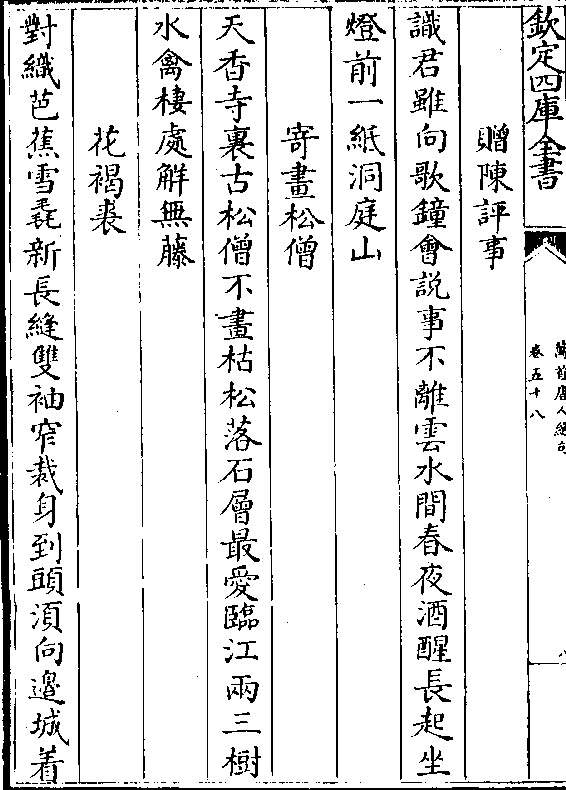 欽定四庫全書
萬首唐人絶句
卷五十八
八
贈陳評事
識君雖向歌鐘會説事不離雲水間春夜酒醒長起坐
燈前一紙洞庭山
寄畫松僧
天香寺裏古松僧不畫枯松落石層最愛臨江兩三樹
水禽棲處解無藤
花褐裘
對織芭蕉雪毳新長縫雙袖窄裁身到頭湏向邉城着